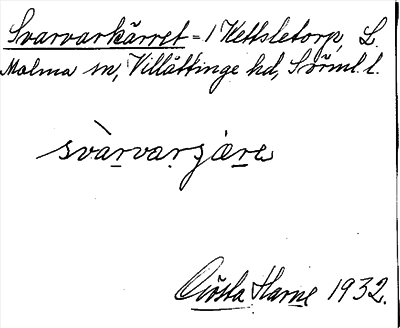 Svarvarkärret - 1 Kettsletorp, L.
Malma sn, Villåttinge hd, Sörml. l.
svàrvarʒärə
Gösta Harne 1932.